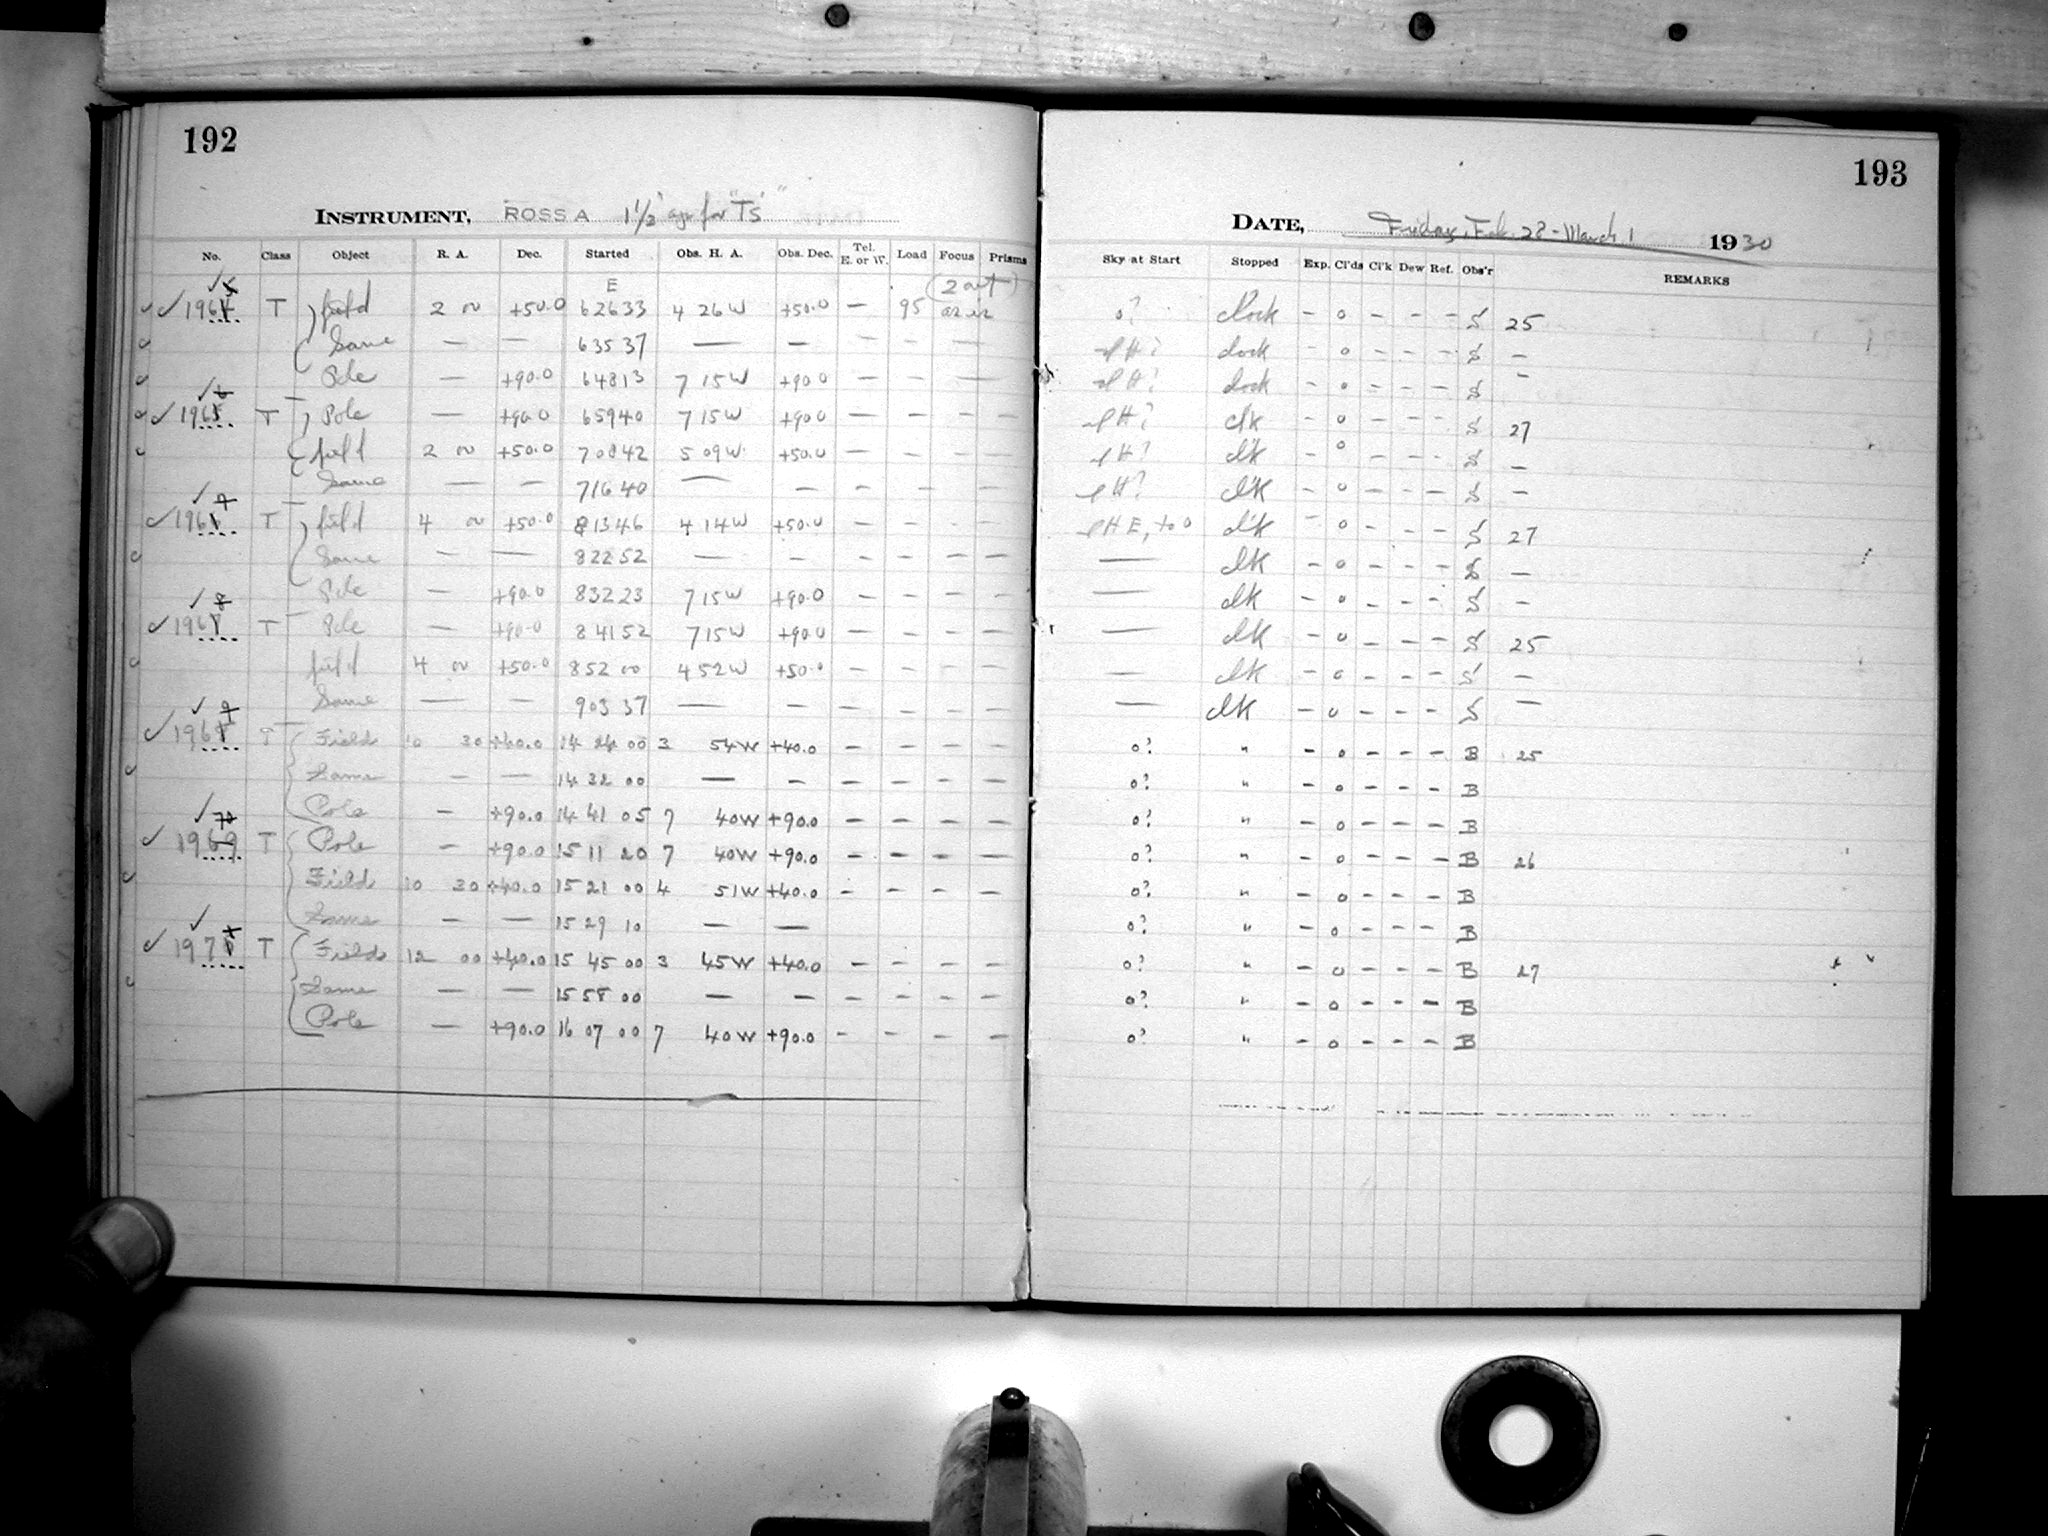 192
INSTRUMENT, ROSS A 1 1/2" ap for "Ts"
No. Class Object R. A. Dec. Started Obs. H. A. Obs. Dec. Tel. E. or W. Load Focus Prisms
E (2 out)
5
✓ ✓ 1964 T field 2 00 +50.0 62633 4 26 W +50.0 — 95 as is
Same — — 63537 — — — — —
Pole — +90.0 64813 7 15 W +90.0 — — —
6
✓ 1965 T Pole — +90.0 65940 7 15 W +90.0 — — — —
field 2 00 +50.0 70842 5 09 W +50.0 — — — —
Same — — 71640 — — — — — —
7
✓ 196 T field 4 00 +50.0 81346 4 14 W +50.0 — — — —
Same — — 82252 — — — — — —
Pole — +90.0 83223 7 15 W +90.0 — — — —
8
✓ 1967 T Pole — +90.0 84152 7 15 W +90.0 — — — —
field 4 00 +50.0 85200 4 52 W +50.0 — — — —
Same — — 90337 — — — — — —
9
✓ 1968 T Field 10 30 +40.0 14 24 00 3 54 W +40.0 — — — —
Same — — 14 32 00 — — — — — —
Pole — +90.0 14 41 05 7 40 W +90.0 — — — —
70
✓ 1969 T Pole — +90.0 15 11 20 7 40 W +90.0 — — — —
Field 10 30 +40.0 15 21 00 4 51 W +40.0 — — — —
Same — — 15 29 10 — —
✓ 1970 T Field 12 00 +40.0 15 45 00 3 45 W +40.0 — — — —
Same — — 15 58 00 — — — — — —
Pole — +90.0 16 07 00 7 40 W +90.0 — — — —
193
DATE, Friday, Feb. 28 - March 1 1930
Sky at Start Stopped Exp. Cl'ds Cl'k Dew Ref. Obs'r REMARKS
o? Clock — o — — — S 25
H? clock — o — — — S —
H? clock — o — — — S —
H? clk — o — — — S 27
H? clk — o — — — S —
H? clk — o — — — S —
H E, to o clk — o — — — S 27
— clk — o — — — S —
— clk — o — — — S —
— clk — o — — — S 25
— clk — o — — — S —
— clk — o — — — S —
o? " — o — — — B 25
o? " — o — — — B
o? " — o — — — B
o? " — o — — — B 26
o? " — o — — — B
o? " — o — — — B
o? " — o — — — B 27
o? " — o — — — B
o? " — o — — — B